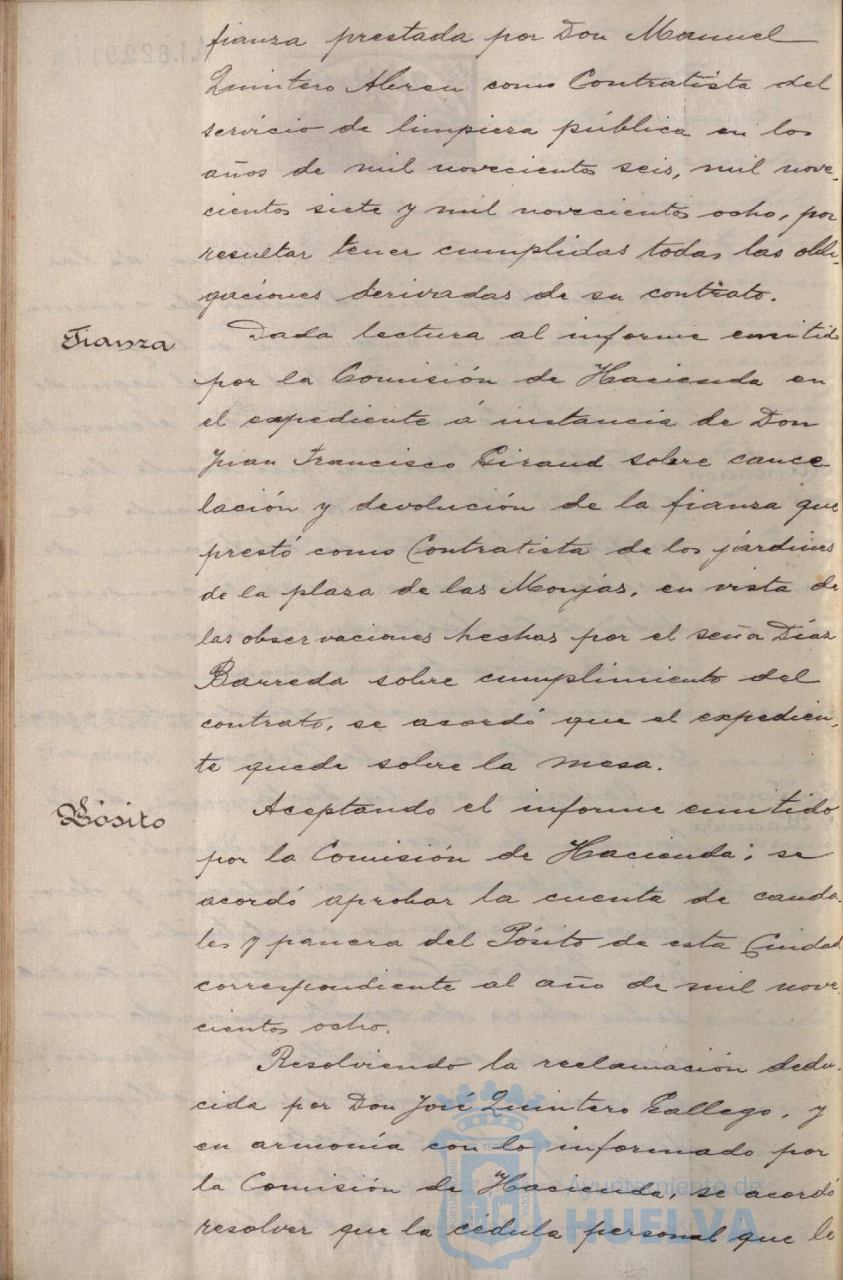 fianza prestada por Don Manuel
Quintero Abreu como Contratista del
servicio de limpieza pública en los
años de mil novecientos seis, mil nove-
cientos siete y mil novecientos ocho, por
resultar tener cumplidas todas las obli-
gaciones derivadas de su contrato.
Fianza
Dada lectura al informe emitido
por la Comisión de Hacienda en
el expediente á instancia de Don
Juan Francisco Giraud sobre cance
lación y devolución de la fianza que
prestó como Contratista de los jardines
de la plaza de las Monjas, en vista de
las observaciones hechas por el señor Díaz
Barreda sobre cumplimiento del
contrato, se acordó que el expedien-
te quede sobre la mesa.
Pósito
Aceptando el informe emitido
por la Comisión de Hacienda; se
acordó aprobar la cuenta de cauda-
les y panera del Pósito de esta Ciudad
correspondiente al año de mil nove-
cientos ocho.
Resolviendo la reclamación dedu-
cida por Don José Quintero Gallego, y
en armonía con lo informado por
la Comisión de Hacienda, se acordó
resolver que la cédula personal que le
Ayuntamiento de
HUELVA